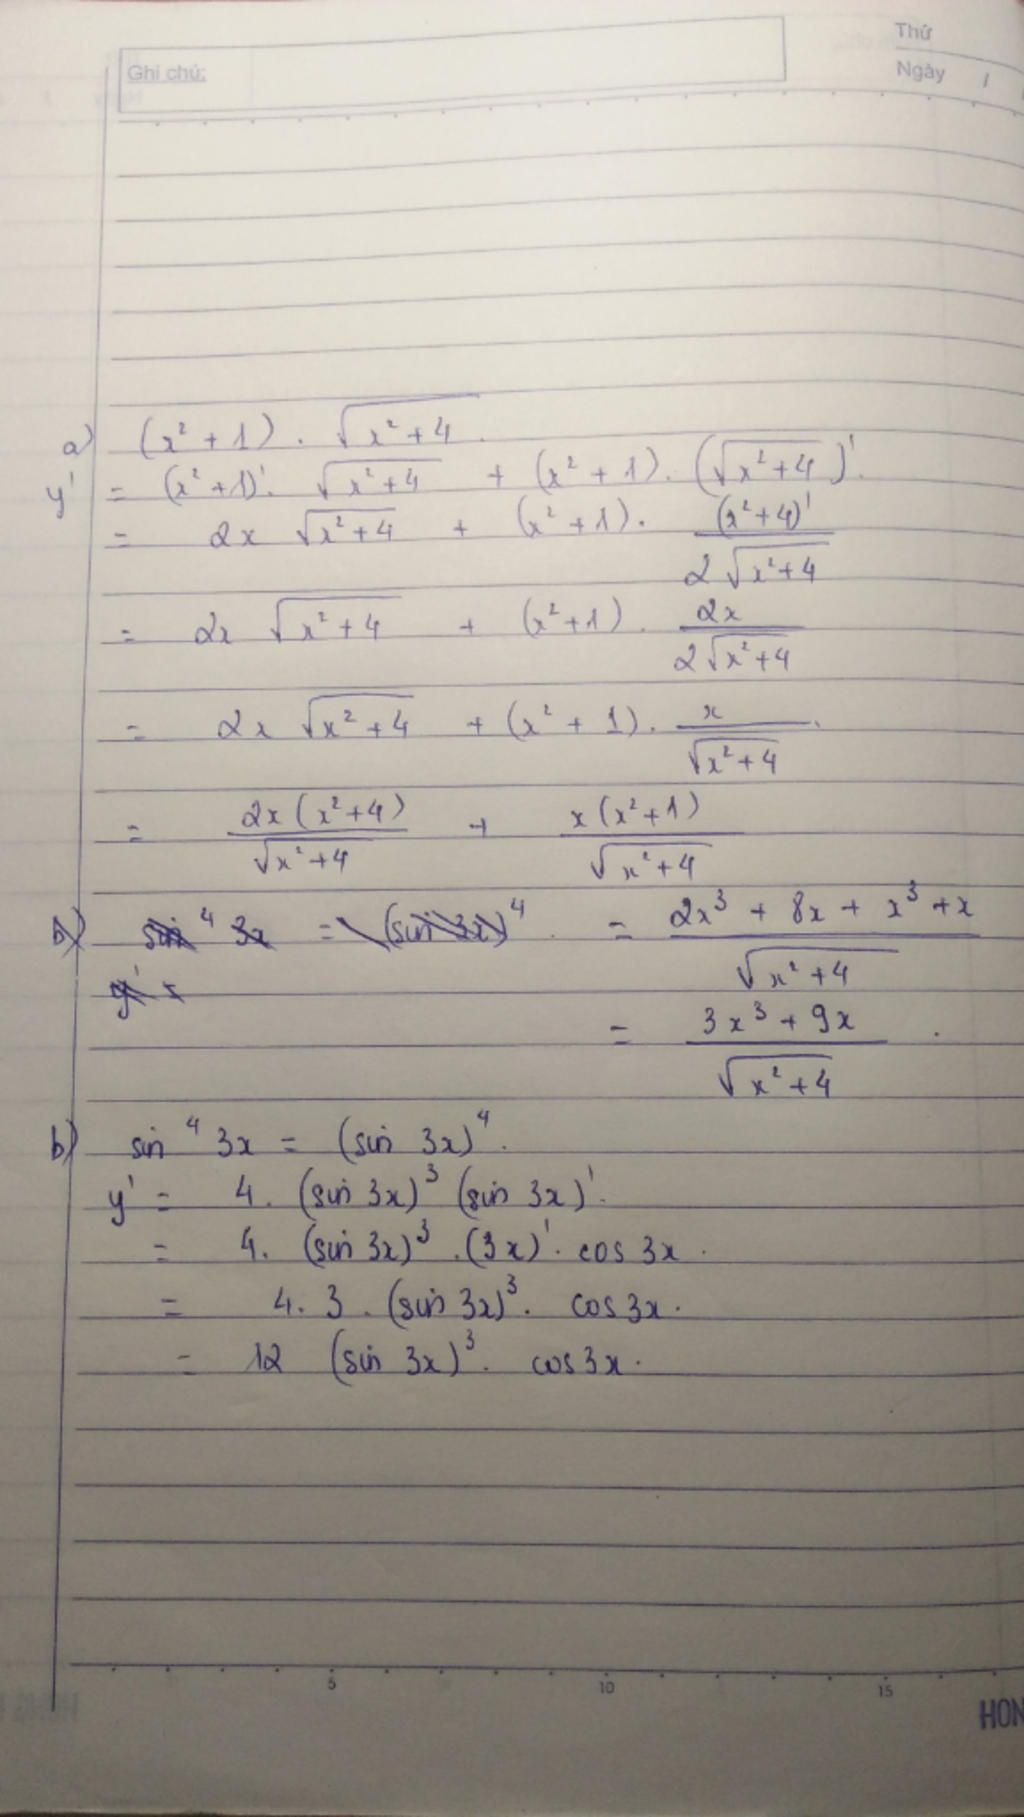 Thứ
Ghi chú:
Ngày /
a) (x² + 1) . √(x² + 4)
y' = (x² + 1)' . √(x² + 4) + (x² + 1) . (√(x² + 4))'.
= 2x √(x² + 4) + (x² + 1) . (x² + 4)' / 2√(x² + 4)
= 2x √(x² + 4) + (x² + 1) . 2x / 2√(x² + 4)
= 2x √(x² + 4) + (x² + 1) . x / √(x² + 4) .
= 2x(x² + 4) / √(x² + 4) + x(x² + 1) / √(x² + 4)
b) sin⁴ 3x = (sin 3x)⁴ = (2x³ + 8x + x³ + x) / √(x² + 4)
y' =
= (3x³ + 9x) / √(x² + 4) .
b) sin⁴ 3x = (sin 3x)⁴.
y' = 4. (sin 3x)³ (sin 3x)'.
= 4. (sin 3x)³ . (3x)' . cos 3x .
= 4. 3 . (sin 3x)³ . cos 3x .
= 12 (sin 3x)³ . cos 3x .
5 10 15
HON